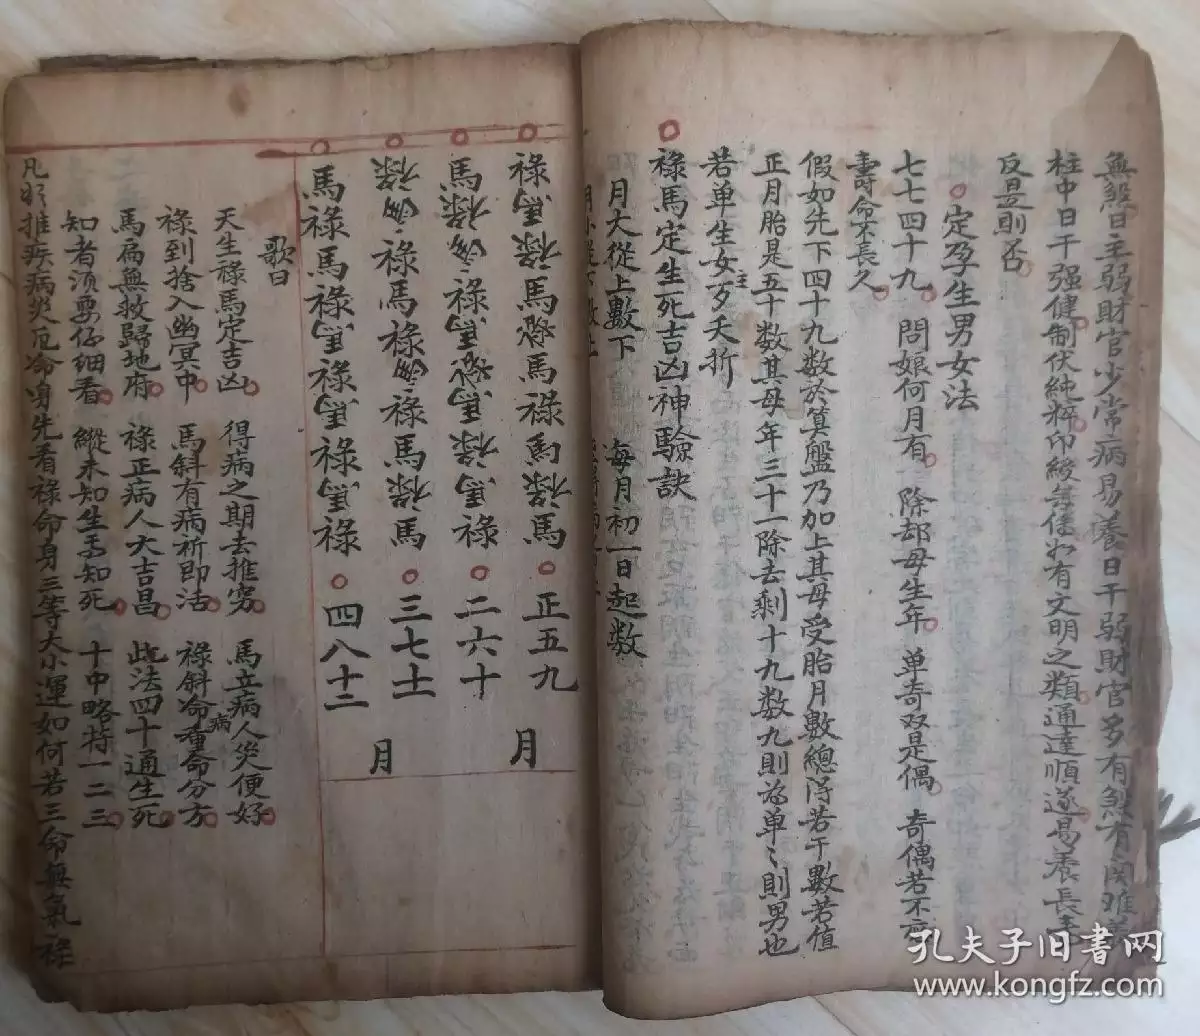 無煞日主弱財官少常病易養日干弱財官多有煞有関难养
柱中日干强健制伏純粹印綬為佳如有文明之類通達順遂易养長寿
反是則否
定孕生男女法
七七四十九 問娘何月有 除却母生年 单奇双是偶 奇偶若不應
壽命不長久
假如先下四十九数於算盤乃加上其母受胎月數總淂若干數若值
正月胎是五十数其母年三十一除去剩十九数九則為单〻則男也
若单生女歹主夭折
祿馬定生死吉凶神驗訣
月大從上數下 每月初一日起数
月小從下數上
祿馬 正五九 月
馬祿 二六十
祿馬 三七十一 月
馬祿馬祿馬祿馬祿馬祿 四八十二
歌曰
天生祿馬定吉凶 得病之期去推穷 馬立病人災便好
祿到捨入幽冥中 馬斜有病祈即活 祿斜病重命分方
馬扁無救歸地府 祿正病人大吉昌 此法四十通生死
知者須要仔细看 縱未知生焉知死 十中略持一二三
凡欲推疾病災厄命身先看祿命身三等大小運如何若三命無氣祿
孔夫子旧書网
www.kongfz.com